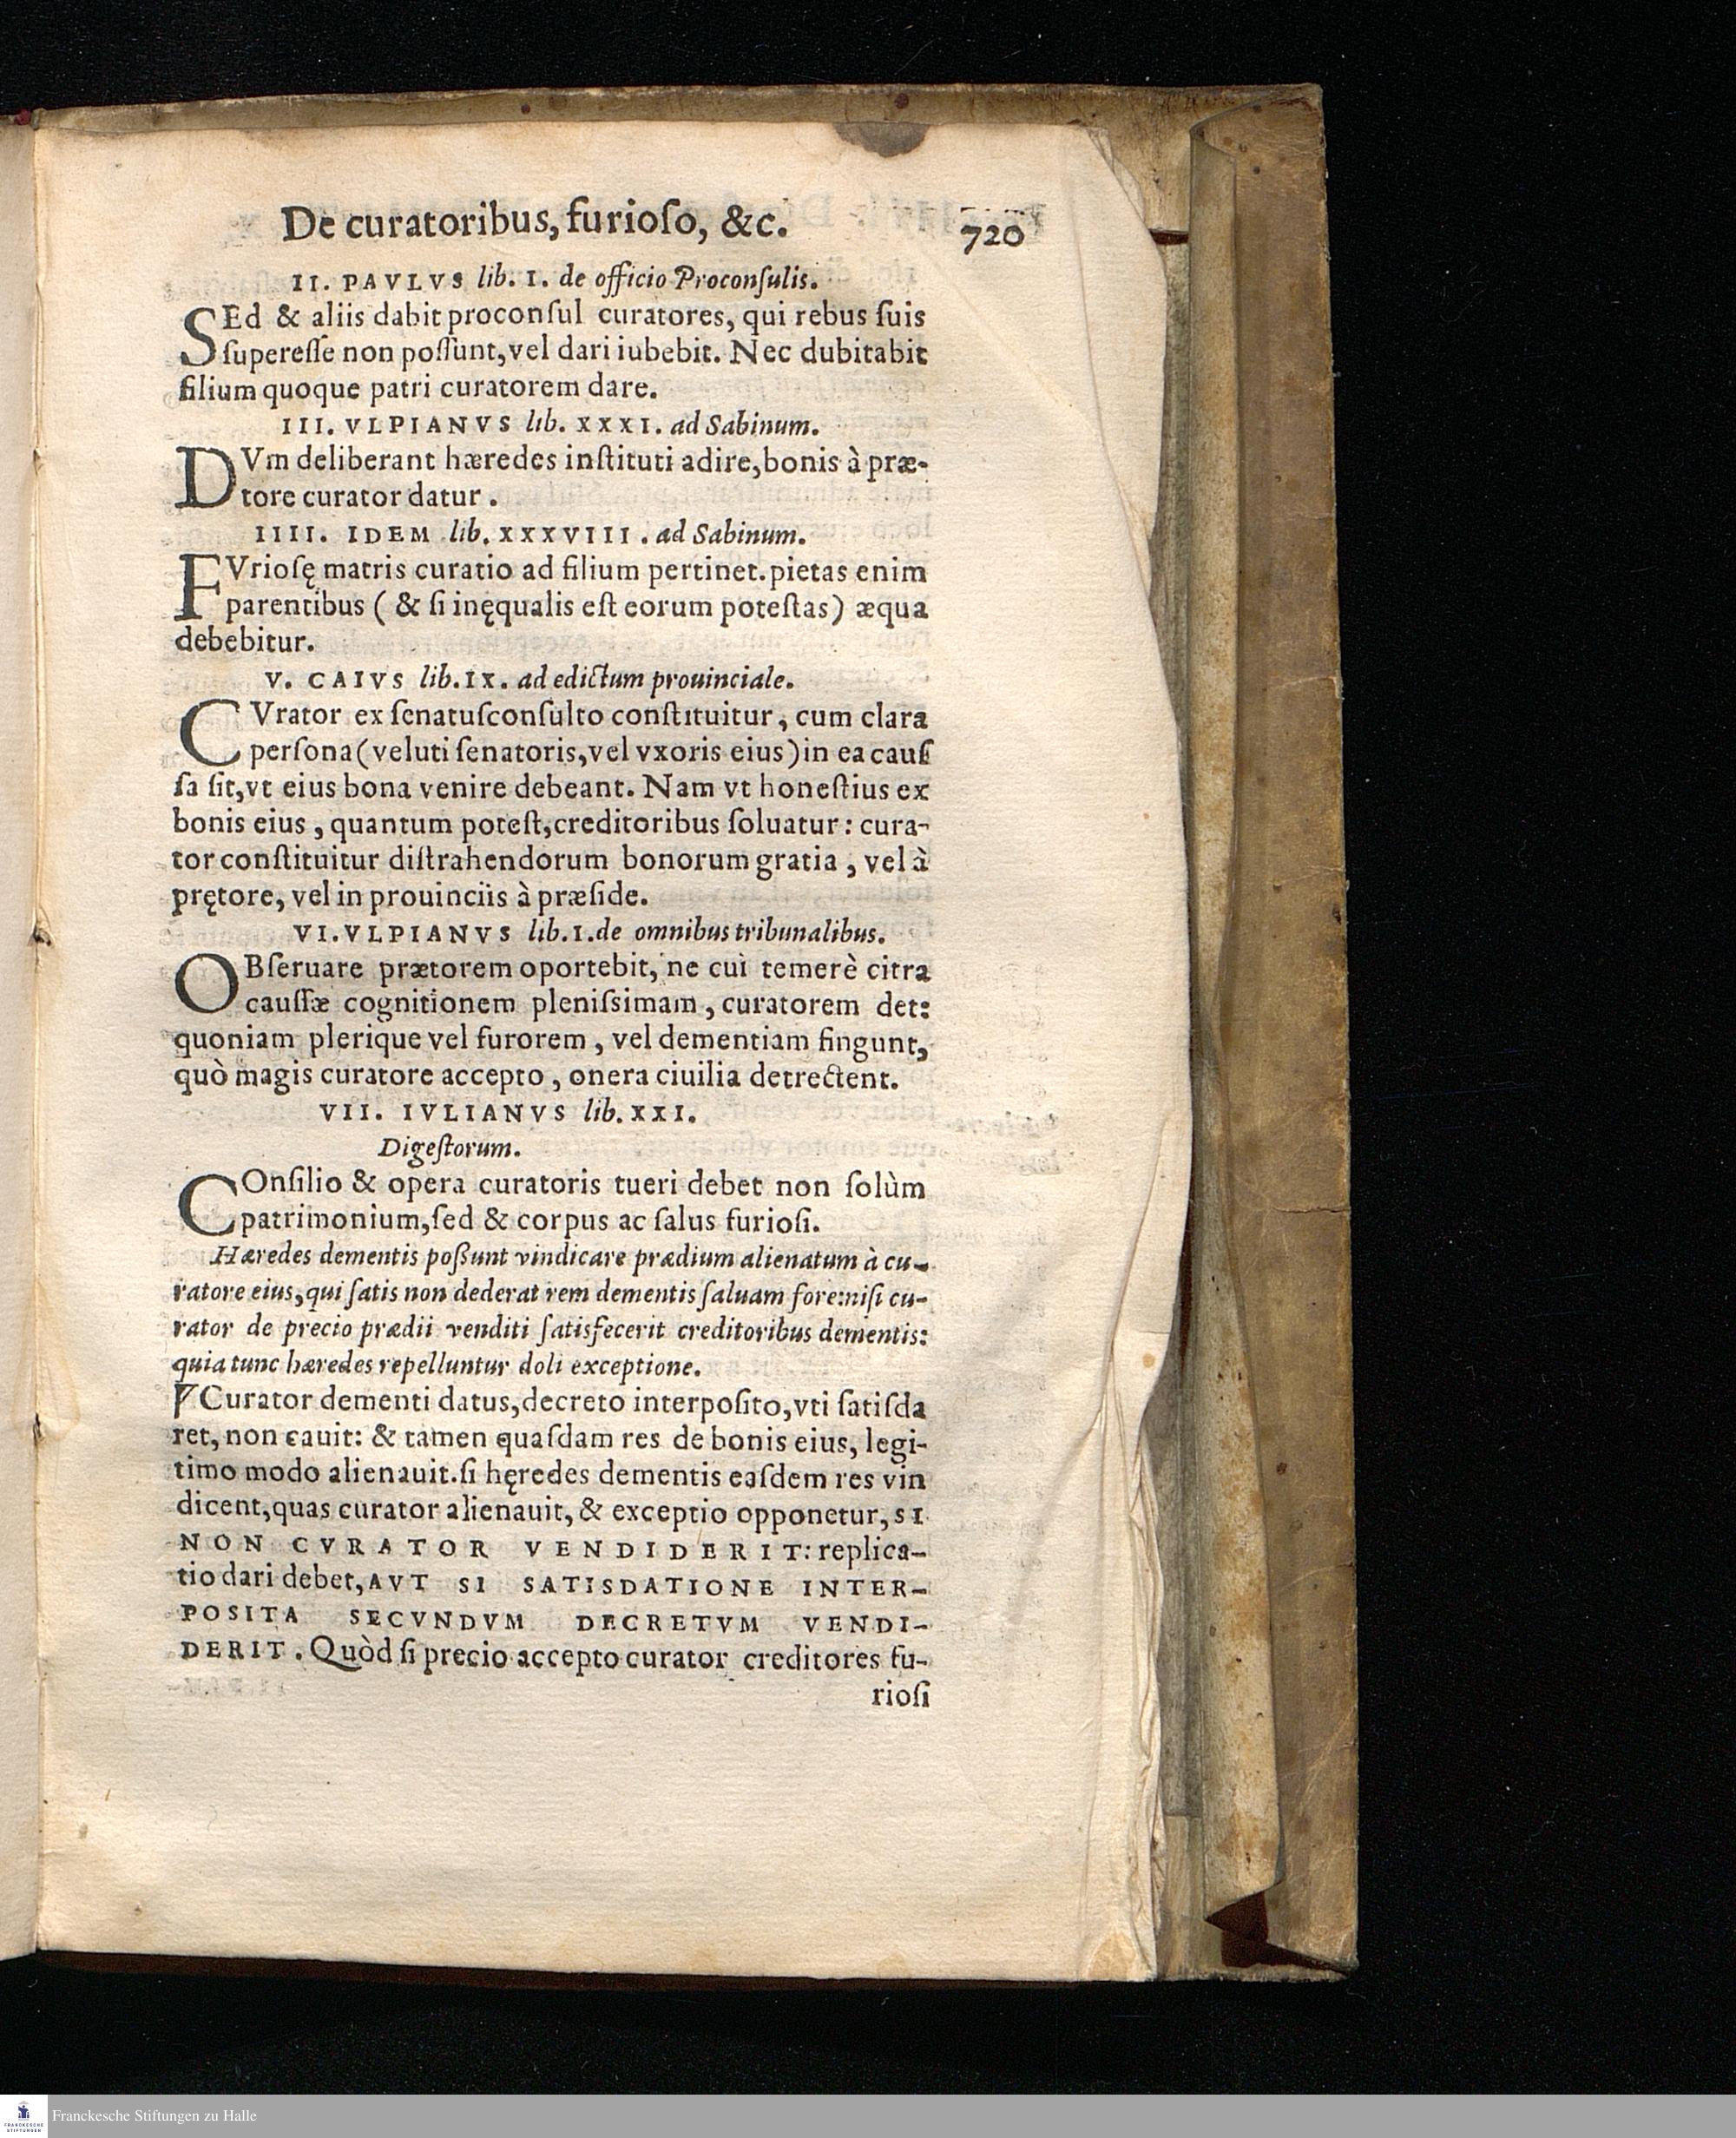 De curatoribus, furioſo, &c.
720
II. PAVLVS lib. I. de officio Proconſulis.
SEd & aliis dabit proconſul curatores, qui rebus ſuis
ſupereſſe non poſſunt, vel dari iubebit. Nec dubitabit
filium quoque patri curatorem dare.
III. VLPIANVS lib. XXXI. ad Sabinum.
DVm deliberant hæredes inſtituti adire, bonis à præ-
tore curator datur.
IIII. IDEM lib. XXXVIII. ad Sabinum.
FVrioſę matris curatio ad filium pertinet. pietas enim
parentibus (& ſi inęqualis eſt eorum poteſtas) æqua
debebitur.
V. CAIVS lib. IX. ad edictum prouinciale.
CVrator ex ſenatuſconſulto conſtituitur, cum clara
perſona (veluti ſenatoris, vel vxoris eius) in ea cauſ
ſa ſit, vt eius bona venire debeant. Nam vt honeſtius ex
bonis eius, quantum poteſt, creditoribus ſoluatur: cura-
tor conſtituitur diſtrahendorum bonorum gratia, vel à
prętore, vel in prouinciis à præſide.
VI. VLPIANVS lib. I. de omnibus tribunalibus.
OBſeruare prætorem oportebit, ne cui temerè citra
cauſſæ cognitionem pleniſsimam, curatorem det:
quoniam plerique vel furorem, vel dementiam fingunt,
quò magis curatore accepto, onera ciuilia detrectent.
VII. IVLIANVS lib. XXI.
Digeſtorum.
COnſilio & opera curatoris tueri debet non ſolùm
patrimonium, ſed & corpus ac ſalus furioſi.
Hæredes dementis poßunt vindicare prædium alienatum à cu-
ratore eius, qui ſatis non dederat rem dementis ſaluam fore: niſi cu-
rator de precio prædii venditi ſatisfecerit creditoribus dementis:
quia tunc hæredes repelluntur doli exceptione.
Curator dementi datus, decreto interpoſito, vti ſatiſda
ret, non cauit: & tamen quaſdam res de bonis eius, legi-
timo modo alienauit. ſi hęredes dementis eaſdem res vin
dicent, quas curator alienauit, & exceptio opponetur, SI
NON CVRATOR VENDIDERIT: replica-
tio dari debet, AVT SI SATISDATIONE INTER-
POSITA SECVNDVM DECRETVM VENDI-
DERIT. Quòd ſi precio accepto curator creditores fu-
rioſi
Franckesche Stiftungen zu Halle
FRANCKESCHE
STIFTUNGEN